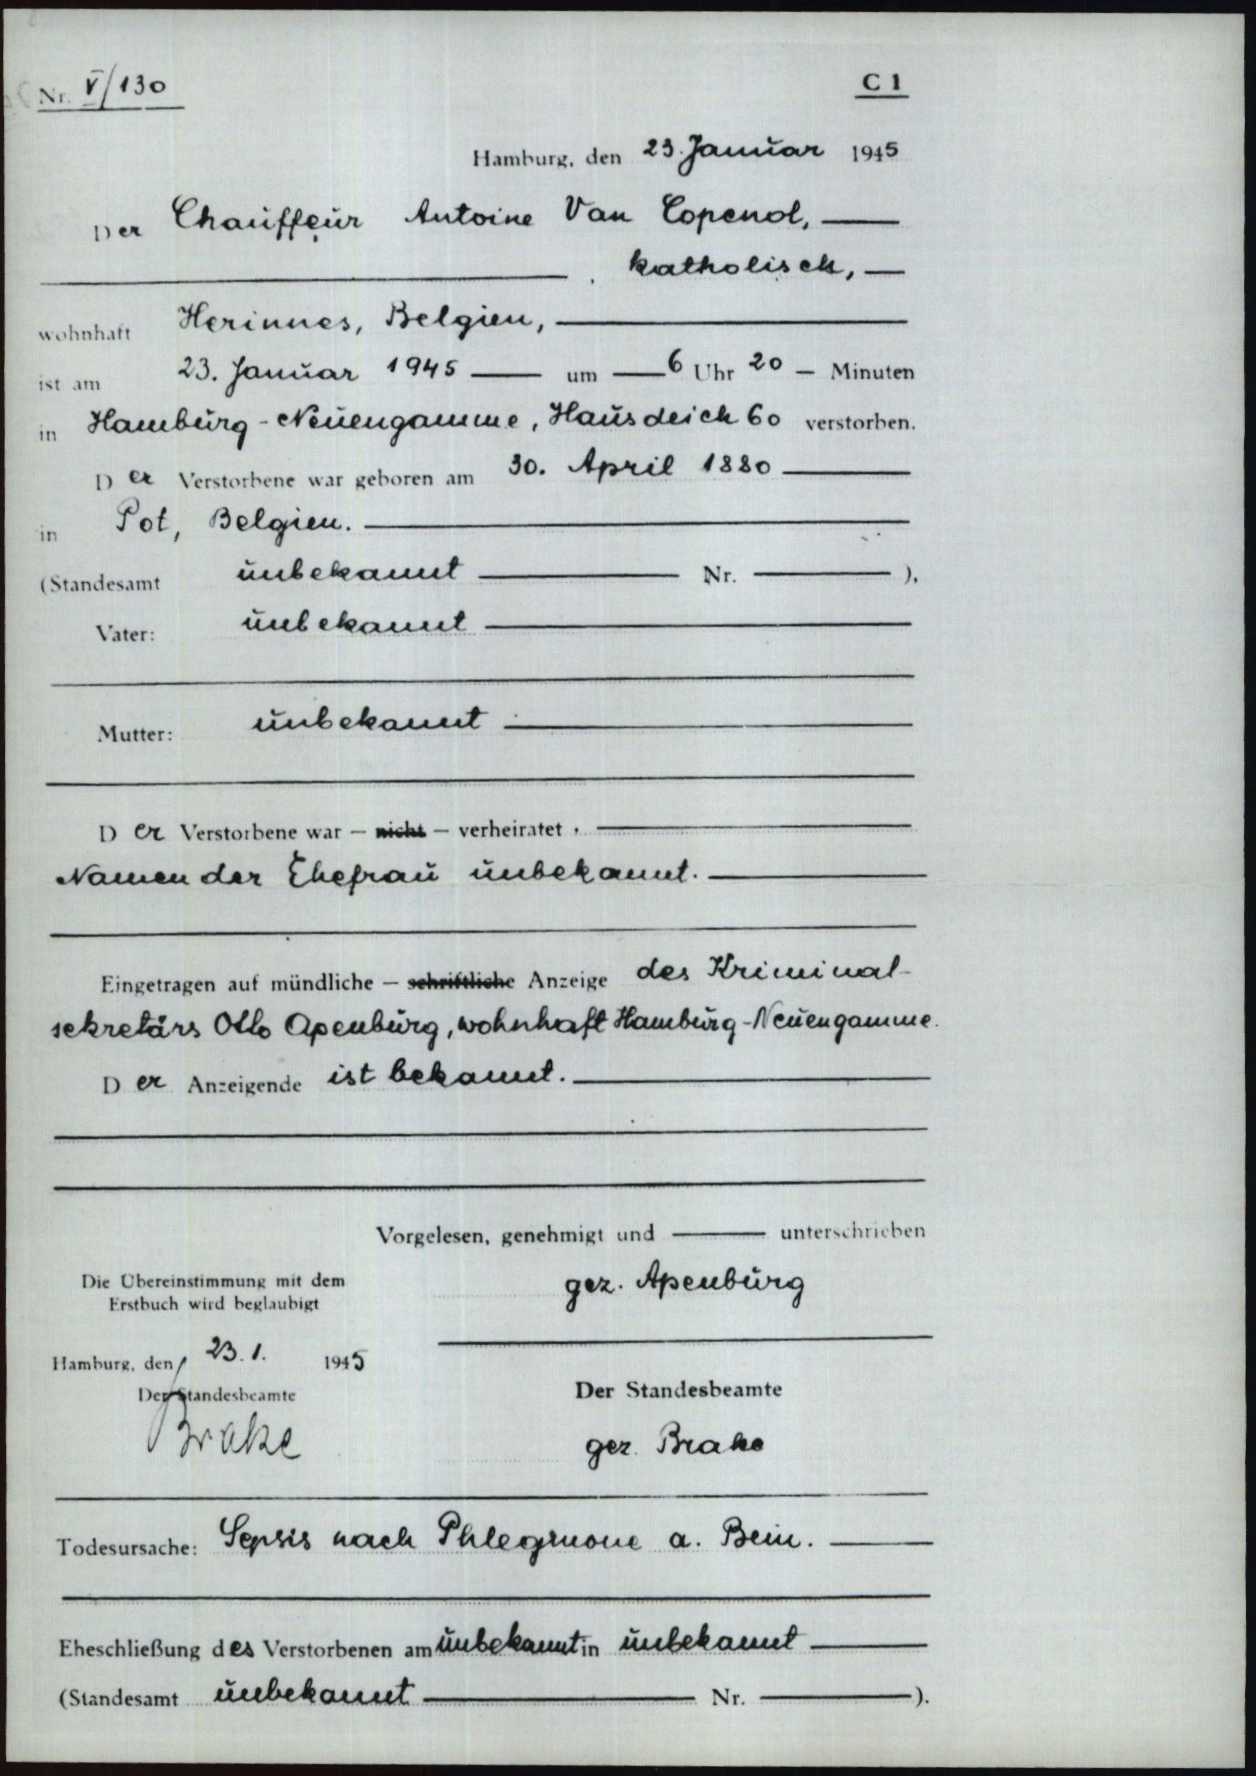 Nr. V/130
C 1
Hamburg, den 23. Januar 1945
Der Chauffeur Antoine Van Copenol,
katholisch,
wohnhaft Herinnes, Belgien,
ist am 23. Januar 1945 um 6 Uhr 20 Minuten
in Hamburg-Neuengamme, Hausdeich 60 verstorben.
Der Verstorbene war geboren am 30. April 1880
in Pot, Belgien.
(Standesamt unbekannt Nr. ),
Vater: unbekannt
Mutter: unbekannt
Der Verstorbene war – nicht – verheiratet,
Namen der Ehefrau unbekannt.
Eingetragen auf mündliche – schriftliche Anzeige des Kriminal-
sekretärs Otto Apenburg, wohnhaft Hamburg-Neuengamme.
Der Anzeigende ist bekannt.
Vorgelesen, genehmigt und unterschrieben
gez. Apenburg
Die Übereinstimmung mit dem
Erstbuch wird beglaubigt
Hamburg, den 23. 1. 1945
Der Standesbeamte
Brake
Der Standesbeamte
gez. Brake
Todesursache: Sepsis nach Phlegmone a. Bein.
Eheschließung des Verstorbenen am unbekannt in unbekannt
(Standesamt unbekannt Nr. ).